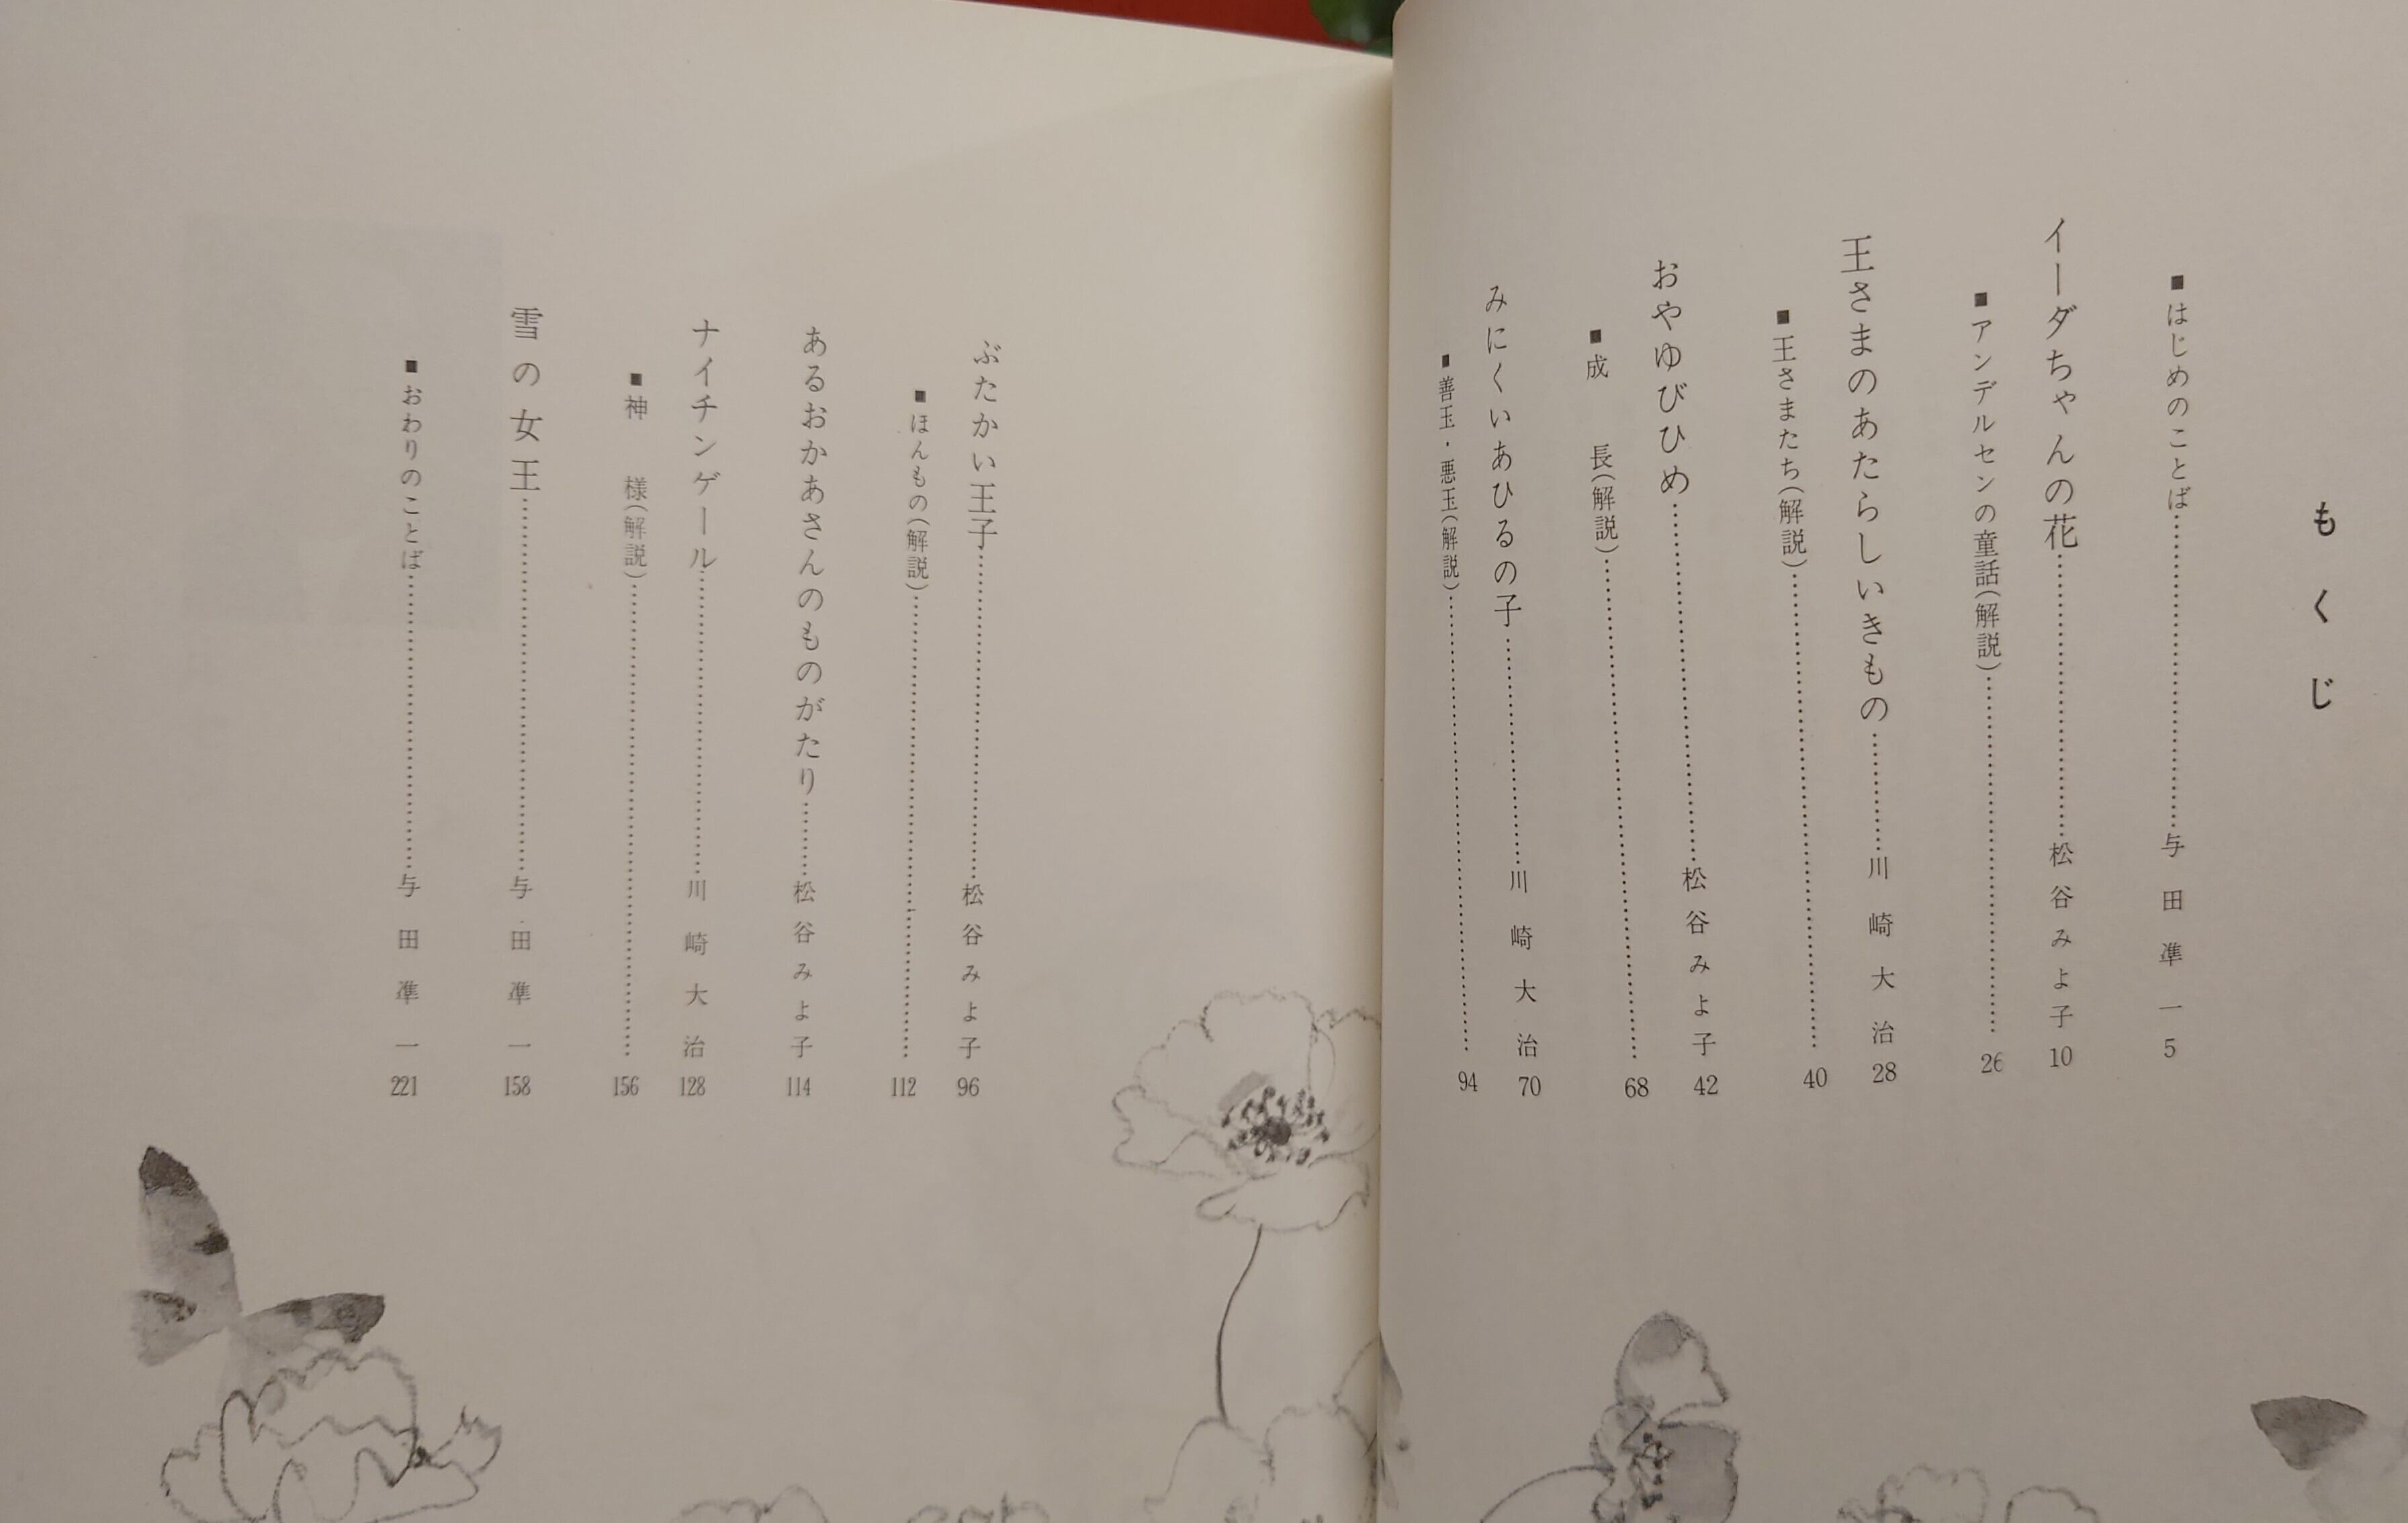 もくじ
■はじめのことば……………与田凖一 5
イーダちゃんの花……………松谷みよ子 10
■アンデルセンの童話(解説)……………26
王さまのあたらしいきもの……………川崎大治 28
■王さまたち(解説)……………40
おやゆびひめ……………松谷みよ子 42
■成　長(解説)……………68
みにくいあひるの子……………川崎大治 70
■善玉・悪玉(解説)……………94
ぶたかい王子……………松谷みよ子 96
■ほんもの(解説)……………112
あるおかあさんのものがたり……………松谷みよ子 114
ナイチンゲール……………川崎大治 128
■神　様(解説)……………156
雪の女王……………与田凖一 158
■おわりのことば……………与田凖一 221